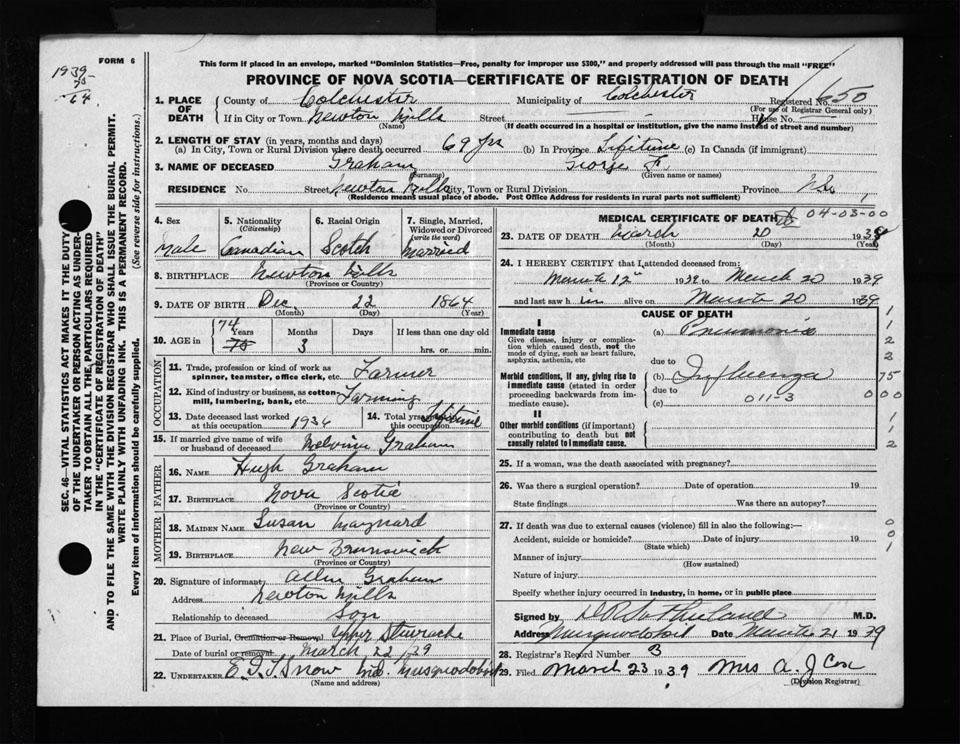 1939
75
64
FORM 6
This form if placed in an envelope, marked "Dominion Statistics—Free, penalty for improper use $300," and properly addressed will pass through the mail "FREE"
PROVINCE OF NOVA SCOTIA—CERTIFICATE OF REGISTRATION OF DEATH
SEC. 46—VITAL STATISTICS ACT MAKES IT THE DUTY
OF THE UNDERTAKER OR PERSON ACTING AS UNDER-
TAKER TO OBTAIN ALL THE PARTICULARS REQUIRED
IN THE "CERTIFICATE OF REGISTRATION OF DEATH"
AND TO FILE THE SAME WITH THE DIVISION REGISTRAR WHO SHALL ISSUE THE BURIAL PERMIT.
WRITE PLAINLY WITH UNFADING INK. THIS IS A PERMANENT RECORD.
Every item of information should be carefully supplied. (See reverse side for instructions.)
1. PLACE OF DEATH
County of Colchester Municipality of Colchester Registered No. 650
(For use of Registrar General only)
If in City or Town Newton Mills Street House No.
(Name) (If death occurred in a hospital or institution, give the name instead of street and number)
2. LENGTH OF STAY (in years, months and days)
(a) In City, Town or Rural Division where death occurred 69 yrs (b) In Province Lifetime (c) In Canada (if immigrant)
3. NAME OF DECEASED Graham George F.
(Surname) (Given name or names)
RESIDENCE No. Street Newton Mills City, Town or Rural Division Province N.S.
(Residence means usual place of abode. Post Office Address for residents in rural parts not sufficient)
4. Sex
Male
5. Nationality
(Citizenship)
Canadian
6. Racial Origin
Scotch
7. Single, Married,
Widowed or Divorced
(write the word)
Married
8. BIRTHPLACE Newton Mills
(Province or Country)
9. DATE OF BIRTH Dec. 22 1864
(Month) (Day) (Year)
10. AGE in
74
Years Months Days If less than one day old
75 3 hrs. or min.
OCCUPATION
11. Trade, profession or kind of work as
spinner, teamster, office clerk, etc. Farmer
12. Kind of industry or business, as cotton-
mill, lumbering, bank, etc. Farming
13. Date deceased last worked
at this occupation 1936
14. Total yrs.
this occupation Lifetime
15. If married give name of wife
or husband of deceased Melvina Graham
FATHER
16. NAME Hugh Graham
17. BIRTHPLACE Nova Scotia
(Province or Country)
MOTHER
18. MAIDEN NAME Susan Maynard
19. BIRTHPLACE New Brunswick
(Province or Country)
20. Signature of informant Allen Graham
Address Newton Mills
Relationship to deceased Son
21. Place of Burial, Cremation or Removal Upper Stewiacke
Date of burial or removal March 22 /39
22. UNDERTAKER E. D. T. Snow Mid. Musquodoboit
(Name and address)
MEDICAL CERTIFICATE OF DEATH 04-03-00
23. DATE OF DEATH March 20 1939
(Month) (Day) (Year)
24. I HEREBY CERTIFY that I attended deceased from:
March 12th 1939 to March 20 1939
and last saw him alive on March 20 1939
CAUSE OF DEATH
I
Immediate cause
Give disease, injury or complica-
tion which caused death, not the
mode of dying, such as heart failure,
asphyxia, asthenia, etc
(a) Pneumonia
due to
Morbid conditions, if any, giving rise to
immediate cause (stated in order
proceeding backwards from im-
mediate cause).
(b) Influenza
due to
(c) 011-3
II
Other morbid conditions (if important)
contributing to death but not
causally related to immediate cause.
1
1
2
2
75
000
1
2
25. If a woman, was the death associated with pregnancy?
26. Was there a surgical operation? Date of operation 19
State findings Was there an autopsy?
27. If death was due to external causes (violence) fill in also the following:—
Accident, suicide or homicide? Date of injury 19
(State which)
Manner of injury
(How sustained)
Nature of injury
Specify whether injury occurred in industry, in home, or in public place
0
0
1
Signed by M.D.
Address Musquodoboit Date March 21 1939
28. Registrar's Record Number 3
29. Filed March 23 1939 Mrs A. J Cox
(Division Registrar)